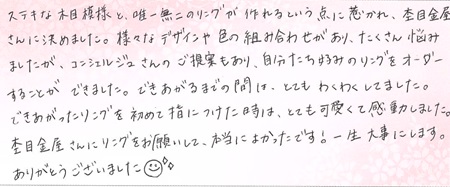 ステキな木目模様と、唯一無二のリングが作れるという点に惹かれ、杢目金屋
さんに決めました。様々なデザインや色の組み合わせがあり、たくさん悩み
ましたが、コンシェルジュさんのご提案もあり、自分たち好みのリングをオーダー
することができました。できあがるまでの間は、とてもわくわくしてました。
できあがったリングを初めて指につけた時は、とても可愛くて感動しました。
杢目金屋さんにリングをお願いして、本当によかったです！一生大事にします。
ありがとうございました